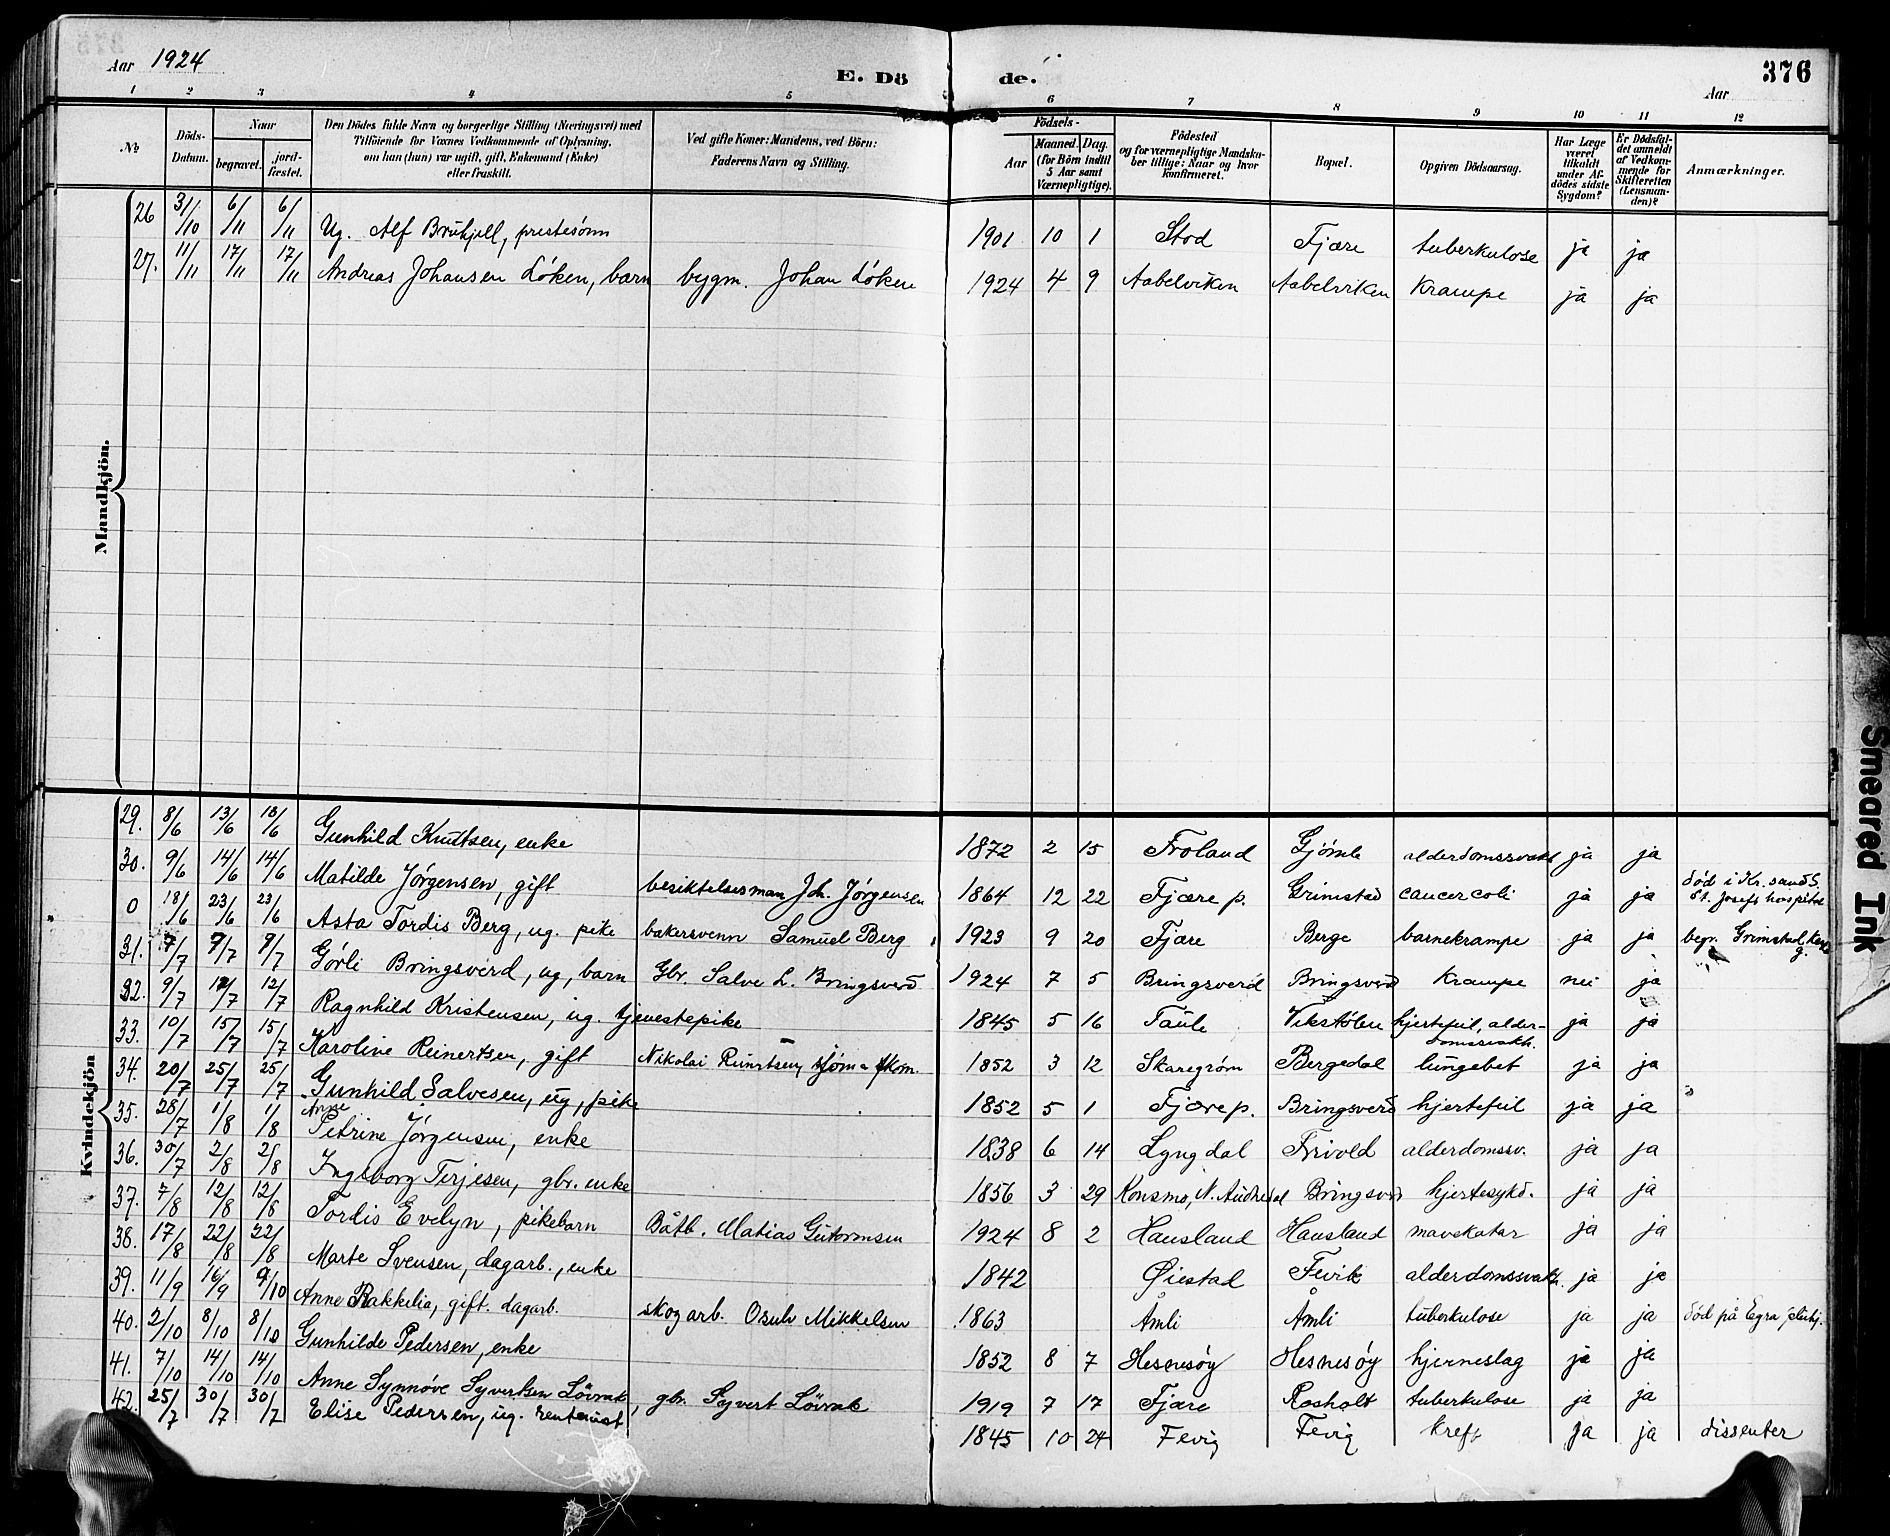 Aar 1924
E. Dö de.
376
Aar
1 2 3 4 5 6 7 8 9 10 11 12
No
Döds-Datum.
Naar
begravet.
jord-fæstet.
Den Dödes fulde Navn og borgerlige Stilling (Næringsvei) med Tilföiende for Voxnes Vedkommende af Oplysning, om han (hun) var ugift, gift, Enkemand (Enke) eller fraskilt.
Ved gifte Koner: Mandens, ved Börn: Faderens Navn og Stilling.
Födsels-
Aar
Maaned. Dag. (for Börn indtil 5 Aar samt Værnepligtige).
Födested og for værnepligtige Mandskaber tillige: Naar og hvor konfirmeret.
Bopæl.
Opgiven Dödsaarsag.
Har Læge været tilkaldt under Afdödes sidste Sygdom?
Er Dödsfaldet anmeldt af Vedkommende for Skifteretten (Lensmanden)?
Anmærkninger.
Mandkjön.
26 31/10 6/11 6/11 Ug. Alf Bruhjell, prestesönn 1901 10 1 Stod Fjære tuberkulose ja ja
27. 11/11 17/11 17/11 Andreas Johansen Løken, barn bygm. Johan Løken 1924 4 9 Aabelviken Aabelviken Krampe ja ja
Kvindekjön
29. 8/6 13/6 13/6 Gunhild Knutsen, enke 1872 2 15 Froland Gjömle alderdomssvakt ja ja
30. 9/6 14/6 14/6 Matilde Jørgensen, gift besiktelsesman Joh. Jørgensen 1864 12 22 Fjære p. Grimstad cancer coli ja ja død i Kr.sand S. St. Josefs hospital
0 18/6 23/6 23/6 Asta Tordis Berg, ug. pike bakersvenn Samuel Berg 1923 9 20 Fjære Berge barnekrampe ja ja begr. Grimstad
31. 7/7 9/7 9/7 Görli Bringsverd, ug, barn Gbr. Salve L. Bringsverd 1924 7 5 Bringsverd Bringsverd Krampe nei ja
32. 9/7 12/7 12/7 Ragnhild Kristensen, ug. tjenestepike 1845 5 16 Taule Vikstølen hjertefeil, alder-domssvakh. ja ja
33. 10/7 15/7 15/7 Karoline Reinertsen, gift Nikolai 1852 3 12 Skaregrøm Bergedal lungebet ja ja
34. 20/7 25/7 25/7 Gunhild Salvesen, ug, pike 1852 5 1 Fjære p. Bringsverd hjertefeil ja ja
35. 28/7 1/8 1/8 Anne Petrine Jørgensen, enke 1838 6 14 Lyngdal Frivold alderdomssv. ja ja
36. 30/7 2/8 2/8 Ingeborg Terjesen, gbr. enke 1856 3 29 Konsmo, N. Audnedal Bringsverd hjertesykd. ja ja
37. 7/8 12/8 12/8 Tordis Evelyn, pikebarn Båtb. Matias Gutormsen 1924 8 2 Hausland Hausland mavekatar ja ja
38. 17/8 22/8 22/8 Marte Svensen, dagarb., enke 1842 Øiestad Fevik alderdomssvakh. ja ja
39. 11/9 16/9 9/10 Anne Rakkelia, gift. dagarb. skogarb. Osulv Mikkelsen 1863 Åmli Åmli tuberkulose ja ja død på Egra
40. 2/10 8/10 8/10 Gunhilde Pedersen, enke 1852 8 7 Hesnesøy Hesnesøy hjerneslag ja ja
41. 7/10 14/10 14/10 Anne Synnøve Syvertsen Lövrak, gbr. Syvert Lövrak 1919 7 17 Fjære Rosholt tuberkulose ja ja
42. 25/7 30/7 30/7 Elise Pedersen, ug. rentenist 1845 10 24 Fevig Fevig kreft ja ja dissenter
Smeared Ink